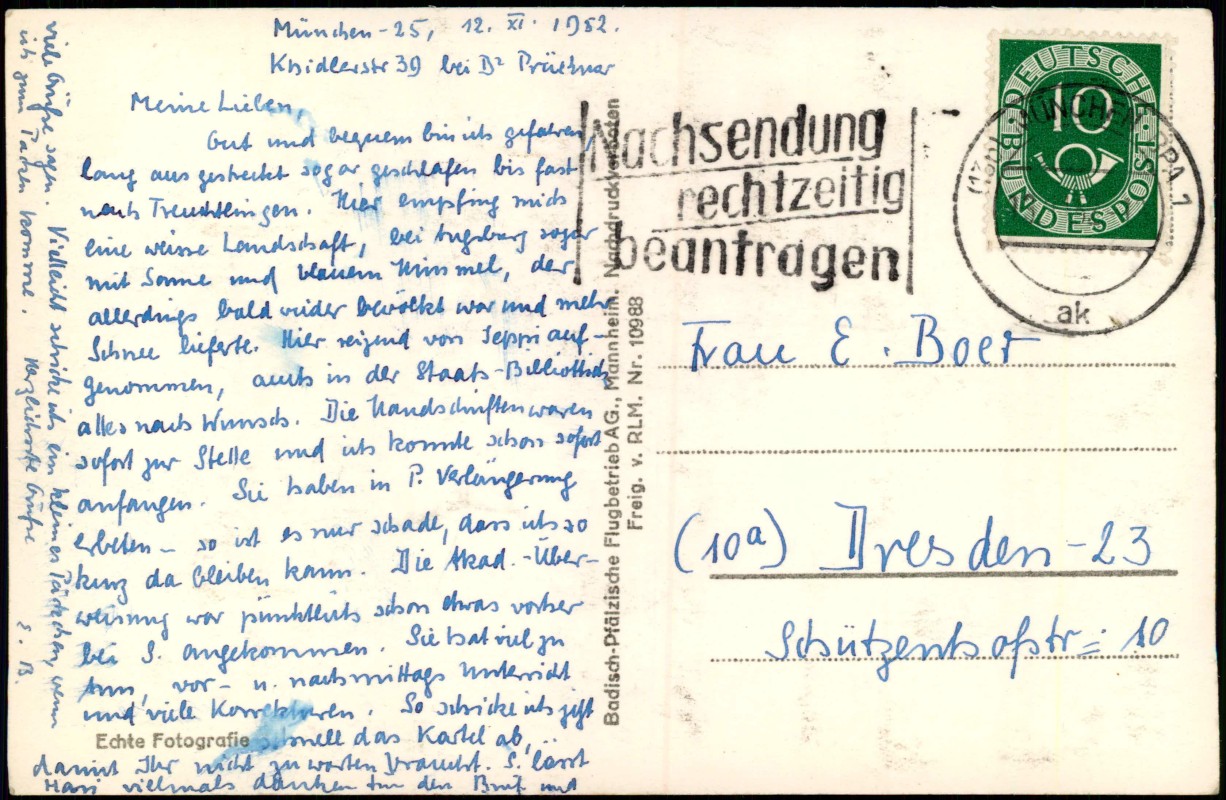 München-25, 12. XI. 1952.
Kridlerstr 39 bei Dr
Meine Lieben,
Gut und bequem bin ich gefahren,
lang ausgestreckt sogar geschlafen bis fast
nach Treuchtlingen. Hier empfing mich
eine weisse Landschaft, bei Augsburg sogar
mit Sonne und blauem Himmel, der
allerdings bald wieder bewölkt war und mehr
Schnee lieferte. Hier reizend von Seppi auf-
genommen, auch in der Staats-Bibliothek
alles nach Wunsch. Die Handschriften waren
sofort zur Stelle und ich konnte schon sofort
anfangen. Sie haben in P. Verlängerung
erbeten – so ist es nur schade, dass ich so
kurz da bleiben kann. Die Akad.-Über-
weisung war pünktlich schon etwas vorher
bei S. angekommen. Sie hat viel zu
tun, vor- u. nachmittags Unterricht
und viele Korrekturen. So schicke ich jetzt
schnell das Kartel ab,
damit Ihr nicht zu warten braucht. S. lässt
vielmals danken für den Brief und
viele Grüsse sagen. Vielleicht schicke ich ein kleines Päckchen, wenn
ich zum Packen komme. Herzlichste Grüsse E. B.
Echte Fotografie
Badisch-Pfälzische Flugbetrieb AG., Mannheim. Nachdruck verboten
Freig. v. RLM. Nr. 10988
Nachsendung
rechtzeitig
beantragen
DEUTSCHE
BUNDESPOST
10
MÜNCHEN
1
ak
Frau E. Boer
(10a) Dresden-23
Schützenhofstr: 10